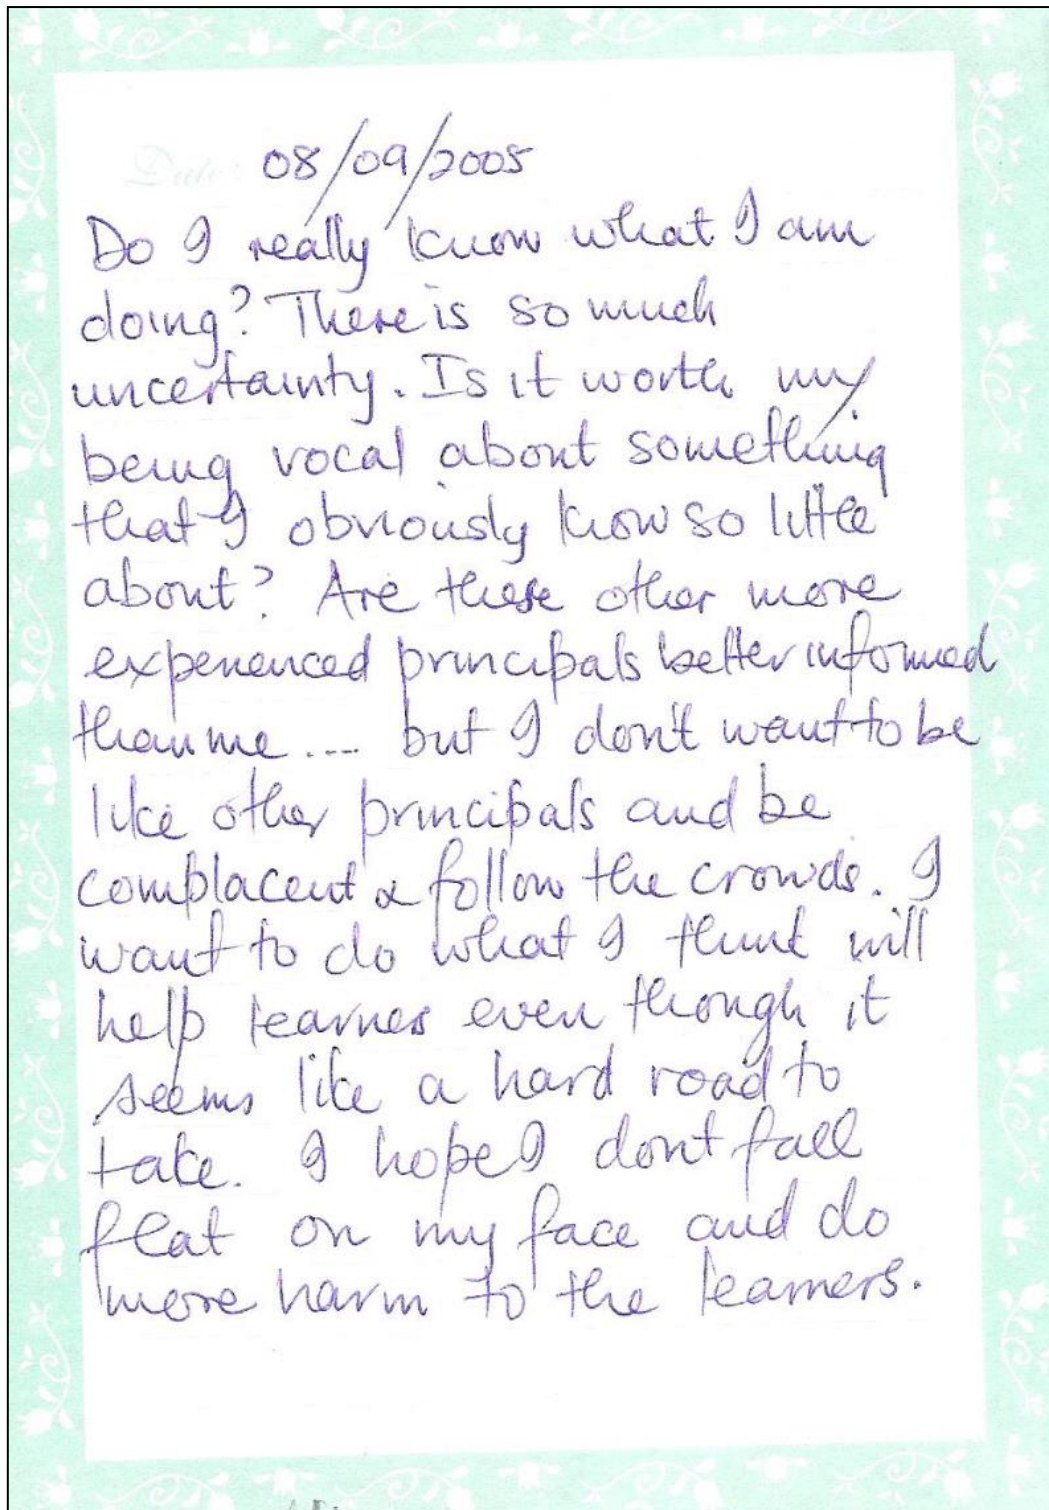 Date: 08/09/2005
Do I really know what I am
doing? There is so much
uncertainty. Is it worth my
being vocal about something
that I obviously know so little
about? Are these other more
experienced principals better informed
than me .... but I don't want to be
like other principals and be
complacent & follow the crowds. I
want to do what I think will
help learners even though it
seems like a hard road to
take. I hope I dont fall
flat on my face and do
more harm to the learners.